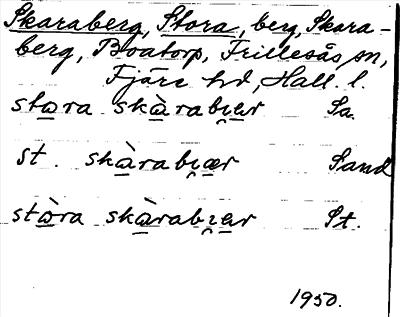 Skaraberg, Stora, berg, Skara-
berg, Boatorp, Frillesås sn,
Fjäre hd, Hall. l.
stὼra skὰrabɪ̯ær Sa.
st. skὰrabɪ̯ær Sand
stὼra skὰrabɪ̯ær St.
1950.